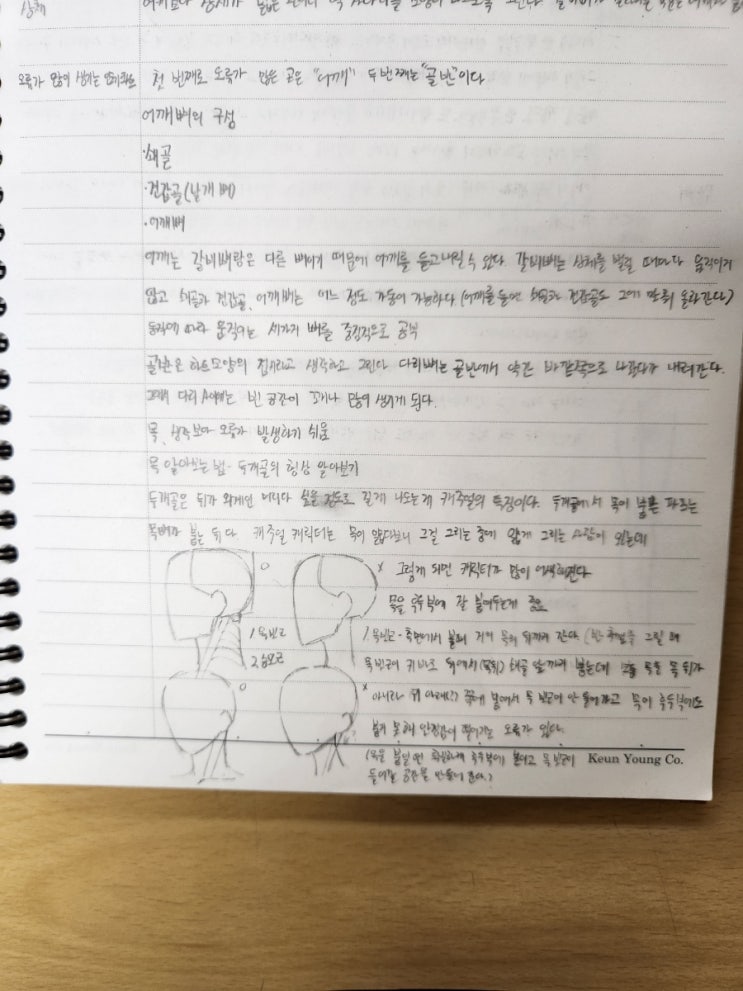 상체
오류가 많이 생기는 인체파트 첫 번째로 오류가 많은 곳은 "어깨" 두번째는 "골반"이다
어깨뼈의 구성
·쇄골
·견갑골(날개뼈)
·어깨뼈
어깨는 갈비뼈랑은 다른 뼈이기 때문에 어깨를 들고내릴 수 있다. 갈비뼈는 상체를 벌릴 때마다 움직이지
않고 쇄골과 견갑골, 어깨뼈는 어느 정도 가동이 가능하다 (어깨를 들면 쇄골과 견갑골도 그에 맞춰 올라간다)
동작에 따라 움직이는 세가지 뼈를 중점적으로 공부
골반은 하트모양의 접시라고 생각하고 그린다 다리뼈는 골반에서 약간 바깥쪽으로 나왔다가 내려간다.
그래서 다리 사이에는 빈 공간이 꽤나 많이 생기게 된다.
목, 생각보다 오류가 발생하기 쉬움
목 알아보는 법 - 두개골의 형상 알아보기
두개골은 뒤가 외계인 머리다 싶을 정도로 길게 나오는게 캐주얼의 특징이다. 두개골에서 목이 붙는 파트는
목뼈가 붙는 뒤다. 캐주얼 캐릭터는 목이 얇다보니 그걸 그리는 중에 얇게 그리는 사람이 있는데
○ x 그렇게 되면 캐릭터가 많이 어색해진다
목을 후두부에 잘 붙여두는게 중요
1 목빗근
2 승모근
1. 목빗근 - 측면에서 볼때 거의 목의 뒤까지 간다 (반측면을 그릴 때
목빗근이 귀 바로 뒤에서(목뒤) 쇄골 앞까지 붙는데 보통 목을 목 뒤가
○ x 아니라 귀 아래(?) 쯤에 붙여서 목 빗근이 안 들어가고 목이 후두부에도
붙지 못해 안정감이 떨어지는 오류가 있다.
(목을 붙일 땐 확실하게 후두부에 붙이고 목빗근이
들어갈 공간을 만들어 준다.)
Keun Young Co.